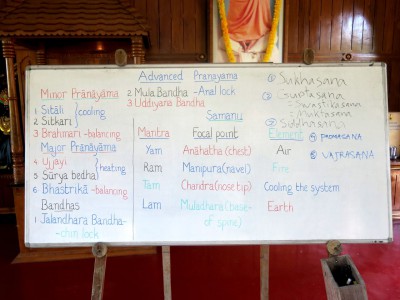 Advanced Pranayama
Minor Prānāyama
1 Sitāli
2 Sitkari
} cooling
3 Brahmari -balancing
Major Prānāyama
4 Ujjayi
5 Sūrya bedha
} heating
6 Bhastrikā -balancing
Bandhas
1 Jalandhara Bandha-
-chin lock
2 Mula Bandha -Anal lock
3 Uddiyana Bandha
Samanu
Mantra Focal point Element
Yam Anāhatha (chest) Air
Ram Manipura (navel) Fire
Tam Chandra (nose tip) Cooling the system
Lam Muladhara (base- Earth
of spine)
① Sukhasana
② Guptasana
= Swastikasana
= Muktasana
③ Siddhasana
④ PADMASANA
⑤ VAJRASANA